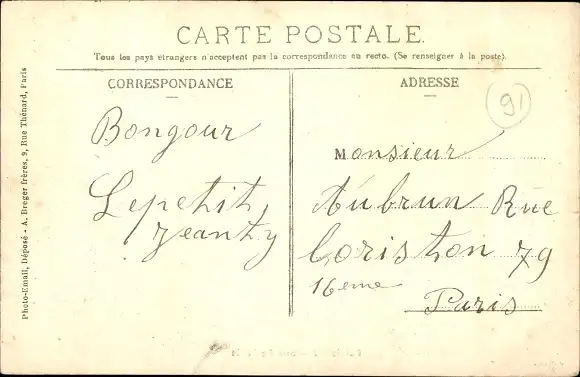 CARTE POSTALE.
Tous les pays étrangers n'acceptent pas la correspondance au recto. (Se renseigner à la poste).
CORRESPONDANCE
ADRESSE
91
Bongour
Lepetit
Jeanty
Monsieur
Aubrun Rue
Coriston 79
16eme
Paris
Photo-Email, Déposé - A. Breger frères, 9, Rue Thénard, Paris